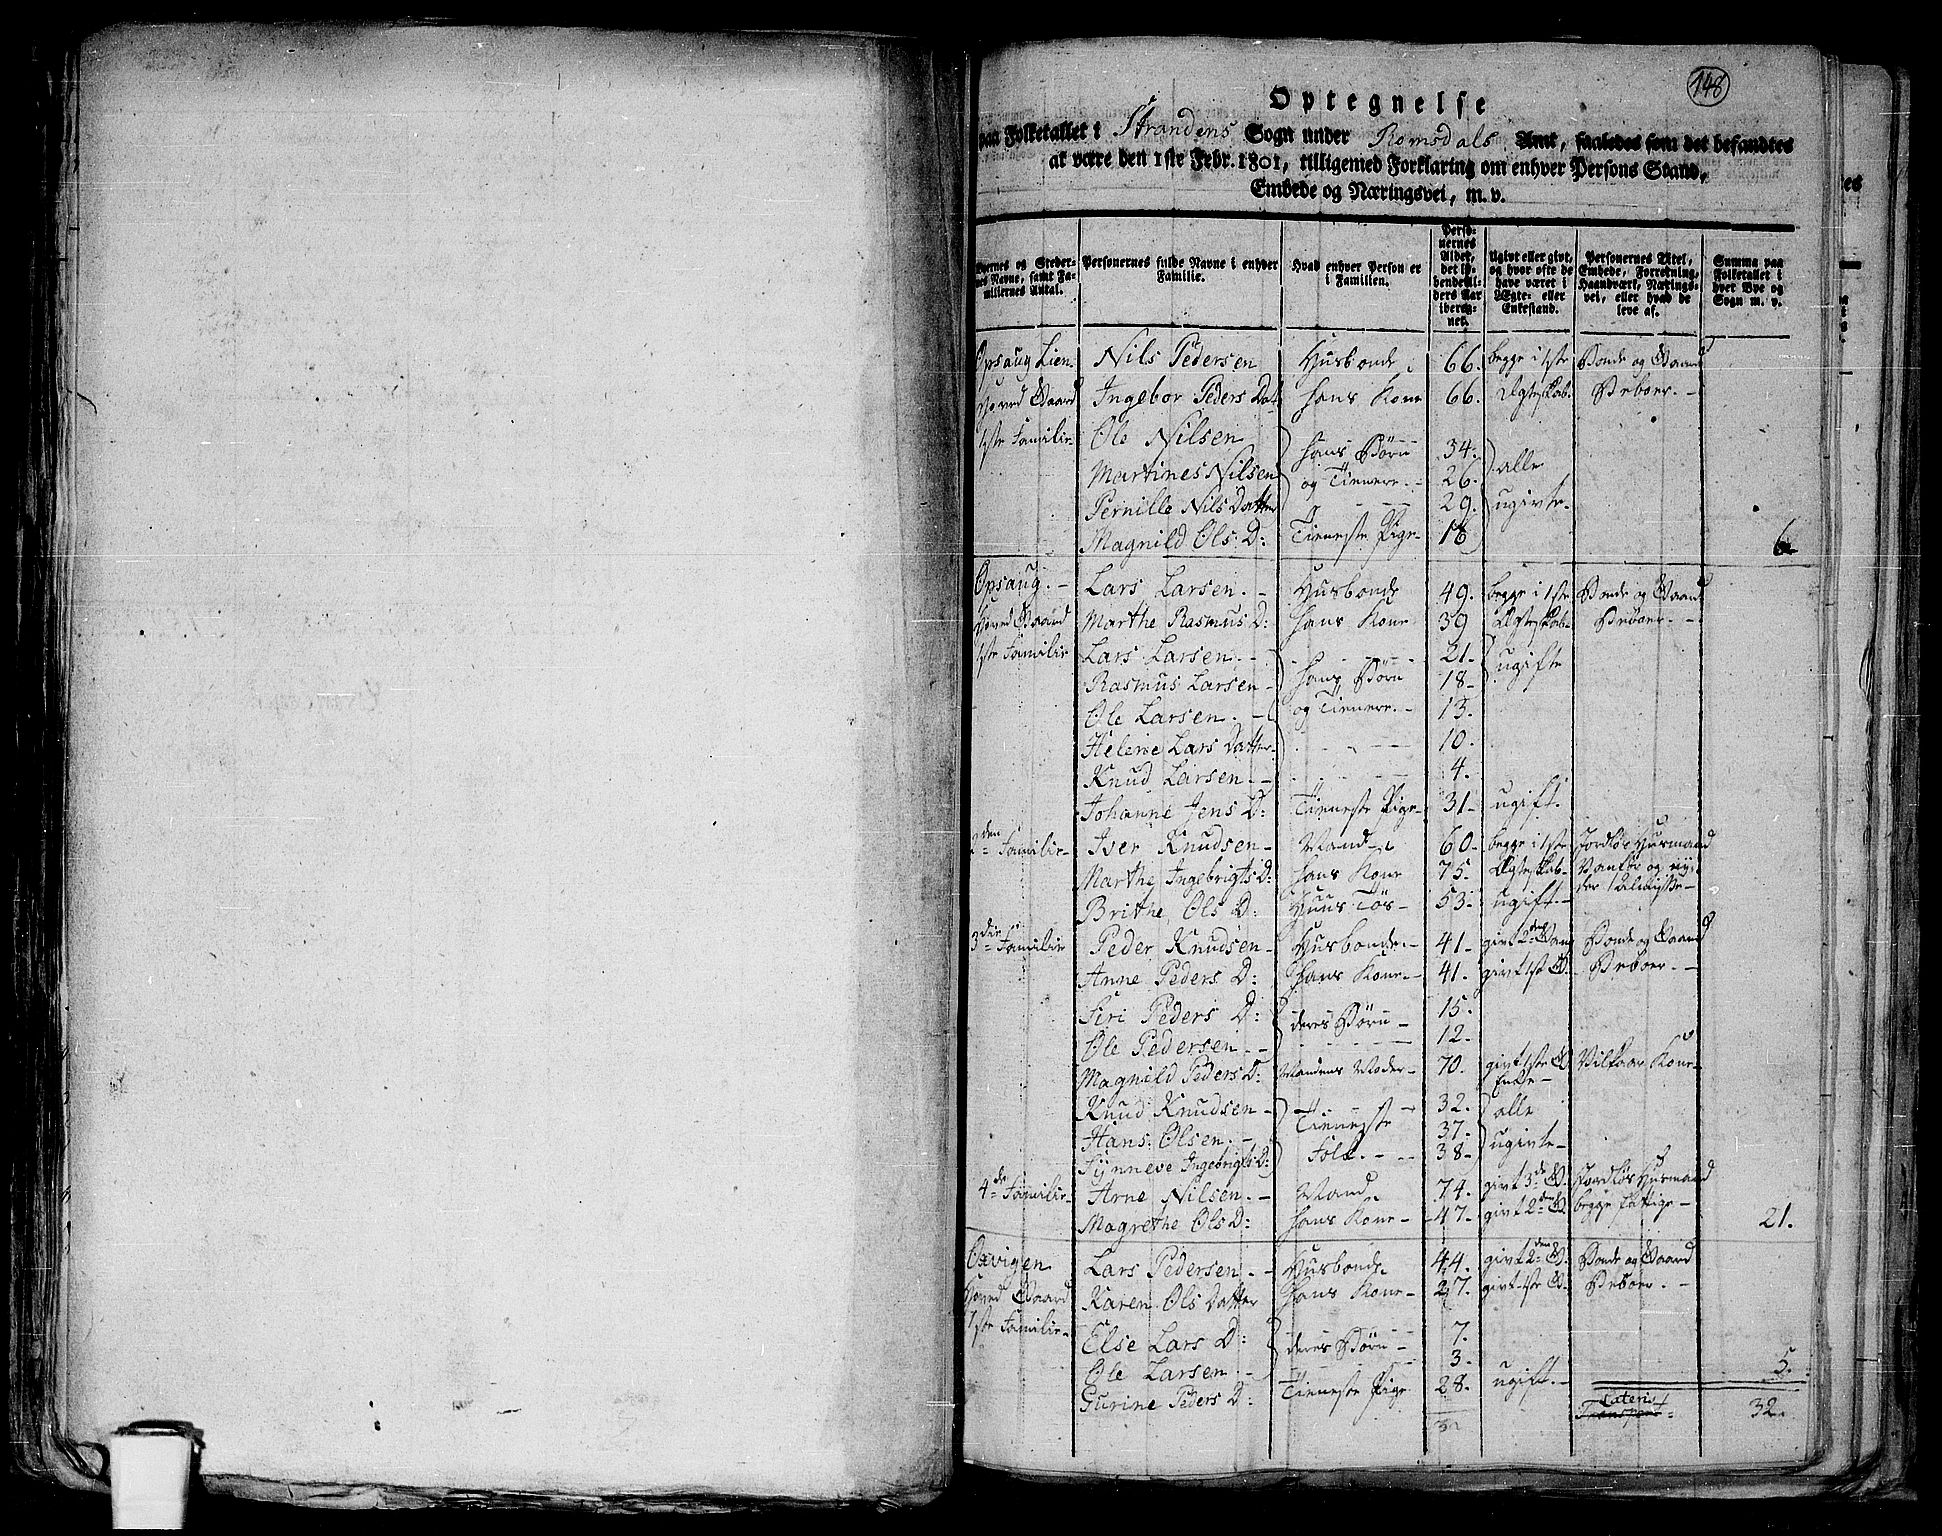 148
Optegnelse
paa Folketallet i Strandens Sogn under Romsdals Amt, saaledes som det befandtes
at være den 1ste Febr. 1801, tilligemed Forklaring om enhver Persons Stand,
Embede og Næringsvei, m. v.
Byernes og Stedernes Navne, samt Familiernes Antal. Personernes fulde Navne i enhver Familie. Hvad enhver Person er i Familien. Personernes Alder, det løbendeAlders Aar iberegnet. Ugivt eller givt, og hvor ofte de have været i Ægte- eller Enkestand. Personernes Titel, Embede, Forretning, Haandværk, Næringsvei, eller hvad de leve af. Summa paa Folketallet i hver Bye og Sogn m. v.
Opsaug Lien Nils Pedersen Husbonde 66. begge i 1ste Bonde og Gaard
Hoved Gaard Ingebor Peders Dat hans Kone 66. Ægteskab. Beboer. -
1ste Familie Ole Nilsen hans Børn 34. alle
Martines Nilsen og Tienere. - 26. ugivte.
Pernille Nils Datter 29.
Magnild Ols D: Tieneste Pige - 18 6
Opsaug. - Lars Larsen. - Husbonde 49. begge i 1ste Bonde og Gaard
Hoved Gaard Marthe Rasmus D: hans Kone 39 Ægteskab - Beboer. -
1ste Familie Lars Larsen. - 21. ugifte
Rasmus Larsen - hans Børn 18 -
Ole Larsen. - og Tienere. - 13.
Helene Lars Datter. 10.
Knud Larsen. - 4.
Johanne Jens D: Tieneste Pige - 31 - ugift.
2den Familie - Iver Knudsen - Mand - 60 - begge i 1ste Jordløs Huusmand
Marthe Ingebrigts D: hans Kone 75. Ægteskab - Vanfør og ny-
Brithe Ols D: Huus Tøs - 53. ugift. - der Almisse -
3die Familie Peder Knudsen - Husbonde. - 41 - givt 2den Gang Bonde og Gaard
Anne Peders D: hans Kone - 41. givt 1ste G. - Beboer. -
Siri Peders D: deres Børn - 15.
Ole Pedersen. - 12.
Magnild Peders D: Mandens Moder - 70. givt 1ste G. Vilkaar Kone -
Enke -
Knud Knudsen - Tieneste 32. alle
Hans Olsen. - Folk. - 37. ugivte -
Synneve Ingebrigts D: 38 -
4de Familie - Arne Nilsen. - Mand 74. givt 3de G. Jordløs Huusmand
Magrethe Ols D: hans Kone - 47 - givt 2den G. begge fattige - 21.
Oxvigen Lars Pedersen. - Husbonde 44. givt 2den G. Bonde og Gaard
Hoved Gaard Karen Ols Datter hans Kone - 27. givt 1ste G. Beboer. -
1ste Familie - Else Lars D: deres Børn - 7.
Ole Larsen. - 3. 5.
Gurine Peders D: Tieneste Pige 28. ugift. -
Lateris
Transport 32.